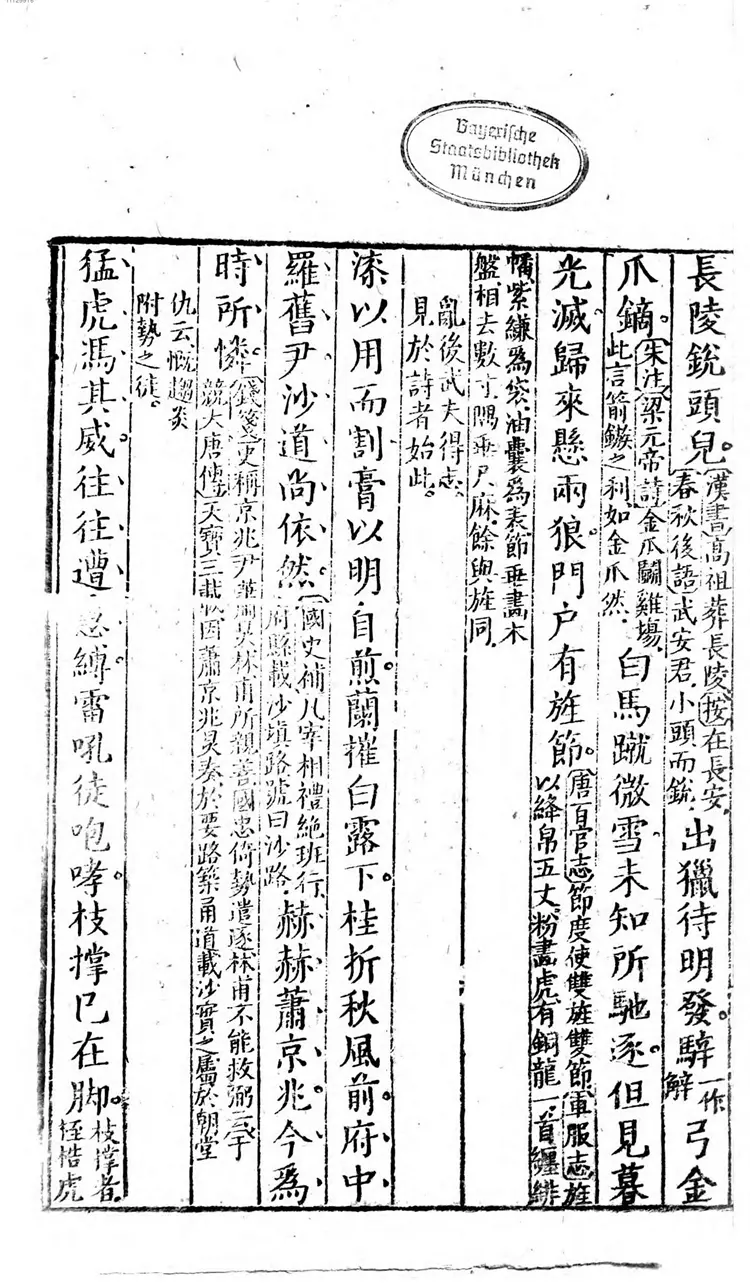 長陵銳頭兒。漢書高祖葬長陵按在長安
春秋後語武安君小頭而銳
出獵待明發。騂一作
解
弓金
爪鏑。朱注梁元帝詩金爪鬭雞場
此言箭鏃之利如金爪然
白馬蹴微雪。未知所馳逐。但見暮
光滅。歸來懸兩狼。門户有旌節。唐百官志節度使雙旌雙節車服志旌
以絳帛五丈粉畫虎有銅龍一首纏緋
幡紫縑爲袋油囊爲表節垂畫木
盤相去數寸隅垂尺麻餘與旌同
亂後武夫得志
見於詩者始此。
漆以用而割膏以明自煎。蘭摧白露下。桂折秋風前。府中
羅舊尹沙道尚依然。國史補凡宰相禮絕班行
府縣載沙填路號曰沙路
赫赫蕭京兆。今爲
時所憐。錢箋史稱京兆尹蕭炅吳林甫所親善國忠倚勢遣逐林甫不能救弼云于
競大唐傳天寶三載因蕭京兆炅奏於要路築甬道載沙實之屬於朝堂
仇云慨趨炎
附勢之徒。
猛虎馮其威。往往遭急縛。雷吼徒咆哮。枝撐已在脚。枝撐者
桎梏虎
Bayerische
Staatsbibliothek
München